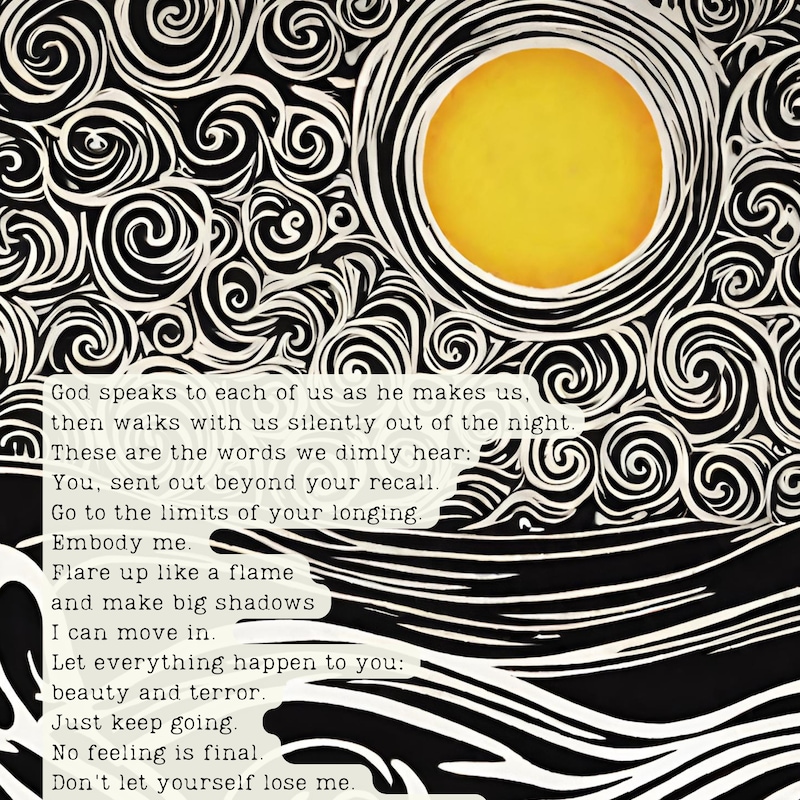 God speaks to each of us as he makes us,
then walks with us silently out of the night.
These are the words we dimly hear:
You, sent out beyond your recall.
Go to the limits of your longing.
Embody me.
Flare up like a flame
and make big shadows
I can move in.
Let everything happen to you:
beauty and terror.
Just keep going.
No feeling is final.
Don't let yourself lose me.